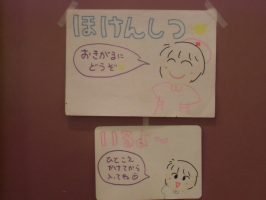 ほけんしつ
おきがるに
どうぞ
いるよ〜
ひとこえ
かけてから
入ってね